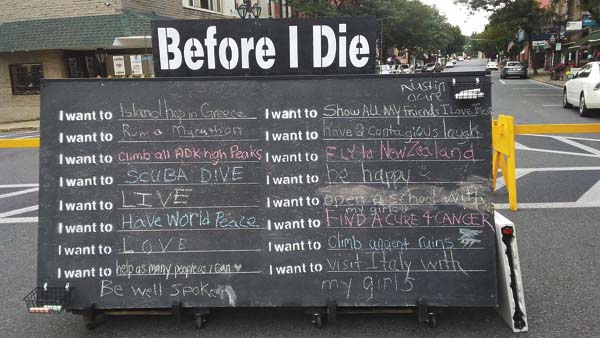 Before I Die
Austin
I want to Island hop in Greece
I want to Run a Marathon
I want to Climb all ADK high Peaks
I want to SCUBA DIVE
I want to LIVE
I want to Have World Peace
I want to LOVE
I want to help as many people as i can
Be well spoken
I want to Show ALL MY friends I Love
I want to Have a contagious laugh
I want to FLY to New Zealand
I want to be happy
I want to open a school with
my girls
I want to FIND A CURE 4 CANCER
I want to Climb ancient ruins
I want to visit Italy with
my girls